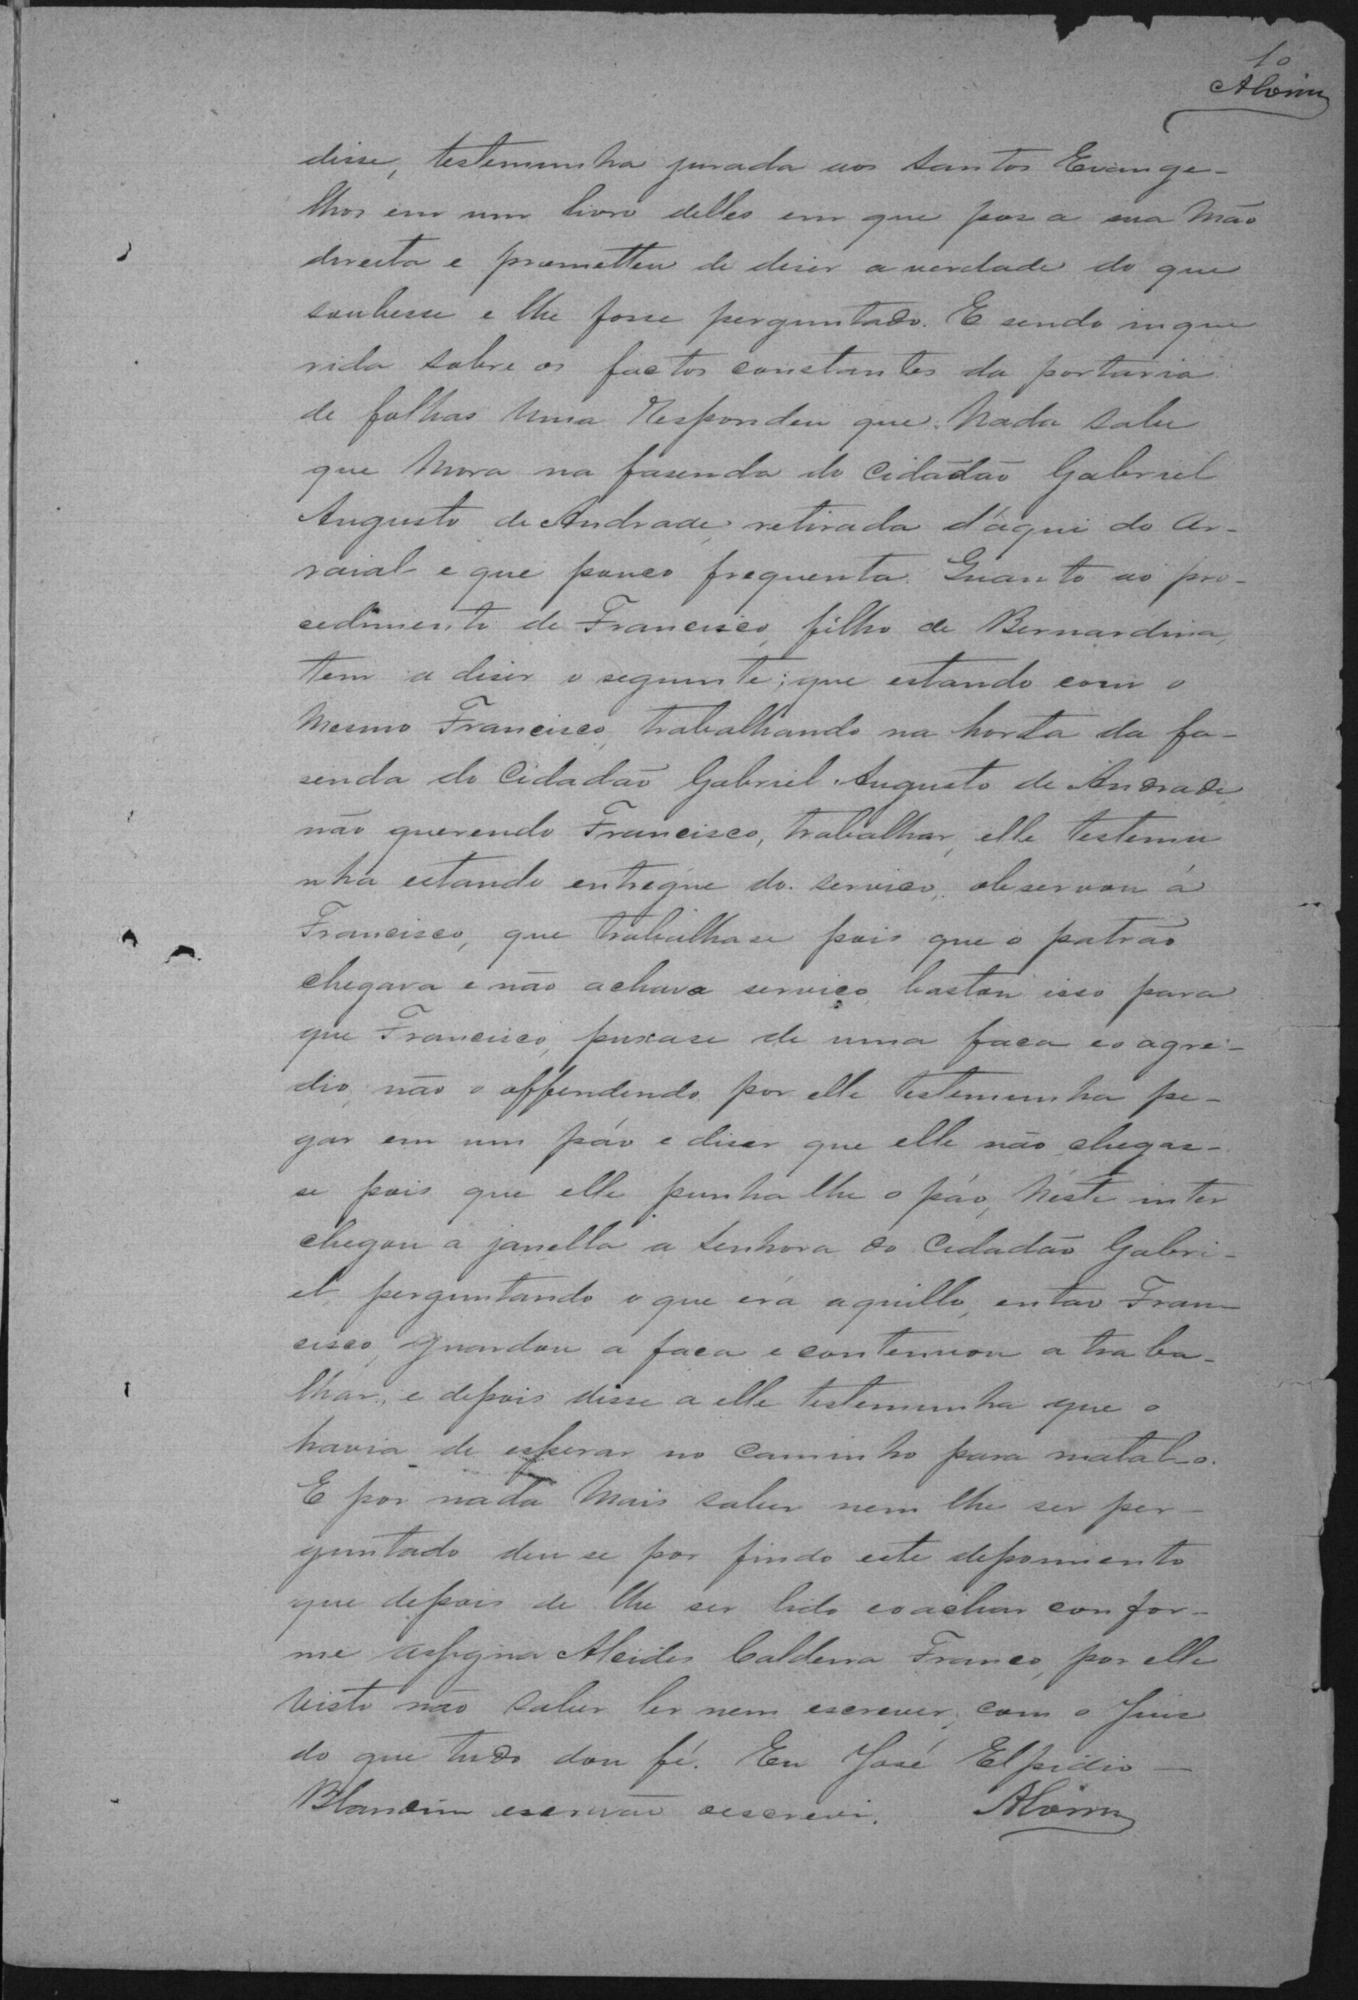 10
Alvim
disse, testemunha jurada aos Santos Evange-
lhos em um livro delles em que pos a sua mão
direita e prometteu de diser a verdade do que
soubesse e lhe fosse perguntado. E sendo inque
rida sobre os factos constantes da portaria
de folhas uma respondeu que nada sabe
que mora na fasenda do cidadão Gabriel
Augusto de Andrade, retirada d'aqui do ar-
raial e que pouco frequenta. Quanto ao pro-
cedimento de Francisco, filho de Bernardina,
tem a diser o seguinte; que estando com o
mesmo Francisco, trabalhando na horta da fa-
senda do cidadão Gabriel Augusto de Andrade,
não querendo Francisco, trabalhar, elle testemu
nha estando entregue do serviço, observou á
Francisco, que trabalhase pois que o patrão
chegava e não achava serviço, bastou isso para
que Francisco, puxase de uma faca e o agre-
dio, não o offendendo por elle testemunha pe-
gar em um páo e diser que elle não chegas-
se pois que elle punha lhe o páo, neste inter
chegou a janella a senhora do cidadão Gabri-
el, perguntando o que era aquillo, entao Fran-
cisco, guardou a faca e continuou a traba-
lhar, e depois disse a elle testemunha que o
havia de esperar no caminho para matal-o.
E por nada mais saber nem lhe ser per-
guntado deu se por findo este depoimento
que depois de lhe ser lido e o achar confor-
me assigna Alcides Caldeira Franco, por elle
visto não saber ler nem escrever, com o Juis
do que tudo dou fé. Eu José Elpidio
Blandim escrivão o escrevi. Alvim